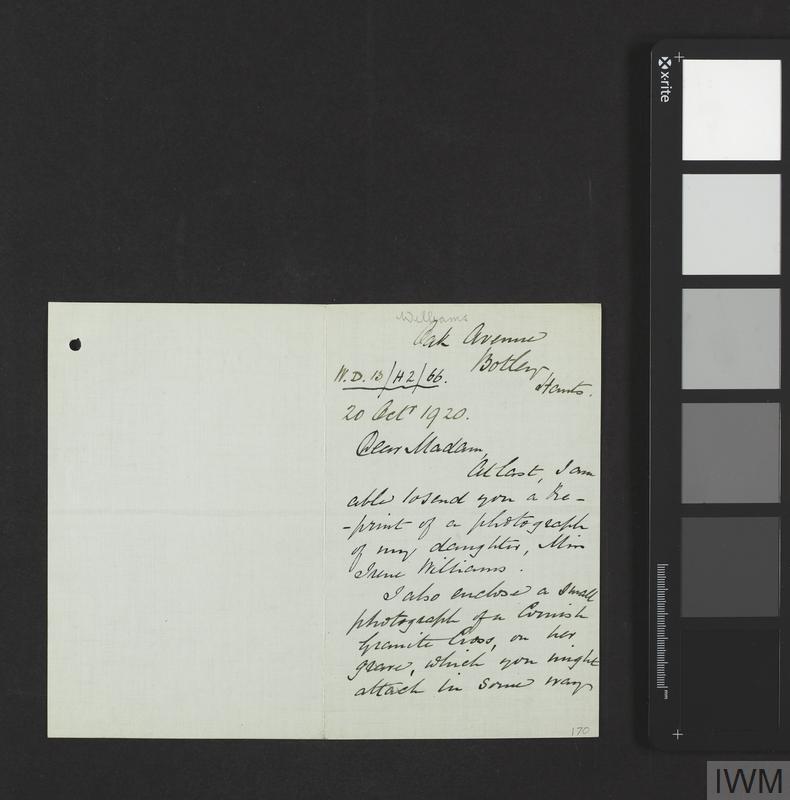 Williams
Oak Avenue
Botley,
Hants.
W.D. 13/H2/66.
20 Octr 1920.
Dear Madam,
At last, I am
able to send you a Re-
-print of a photograph
of my daughter, Miss
Irene Williams.
I also enclose a small
photograph of a Cornish
Granite Cross, on her
grave, which you might
attach in some way
170
x-rite
mm
IWM